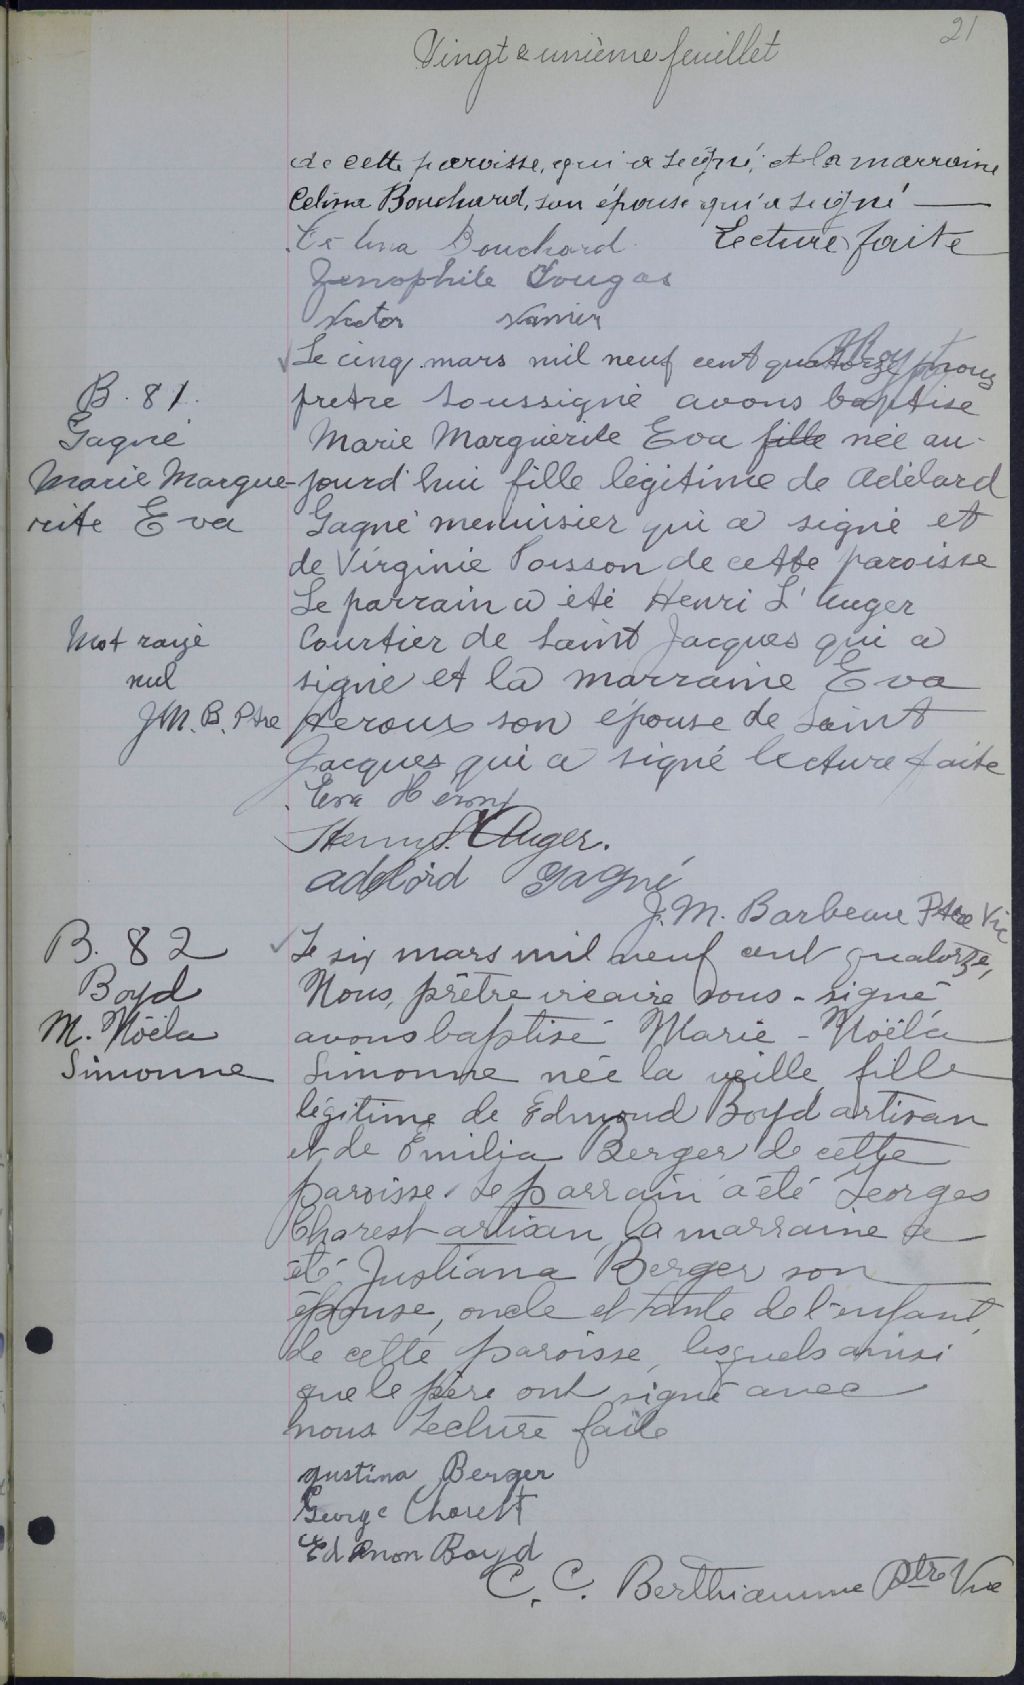 21
Vingt & unième feuillet
de cette paroisse, qui a signé; et la marraine
Celina Bouchard, son épouse qui a signé
Lecture faite
Célina Bouchard
Zenophile Dougas
Victor
Le cinq mars mil neuf cent quatorze nous
B. 81.
prêtre soussigné avons baptisé
Gagné
Marie Marguerite Eva fille née au-
Marie Margue-
jourd'hui fille légitime de Adélard
rite Eva
Gagné menuisier qui a signé et
de Virginie Poisson de cette paroisse
Le parrain a été Henri L'Auger
Mot rayé
Courtier de Saint Jacques qui a
nul
signé et la marraine Eva
J.M.B. Ptre
Heroux son épouse de Saint
Jacques qui a signé lecture faite
Eva Héroux
Henry L'Auger.
adelard Gagné
J. M. Barbeau Ptre Vic
B. 82
Le six mars mil neuf cent quatorze,
Boyd
Nous, prêtre vicaire sous-signé
M. Noëla
avons baptisé Marie-Noëla
Simonne
Simonne née la veille, fille
légitime de Edmond Boyd artisan
et de Emilia Berger de cette
paroisse. Le parrain a été Georges
Charest artisan, la marraine a
été Justiana Berger son
épouse, oncle et tante de l'enfant,
de cette paroisse, lesquels ainsi
que le père ont signé avec
nous Lecture faite
Justina Berger
George Charest
Edmon Boyd
C. C. Berthiaume Ptre Vic